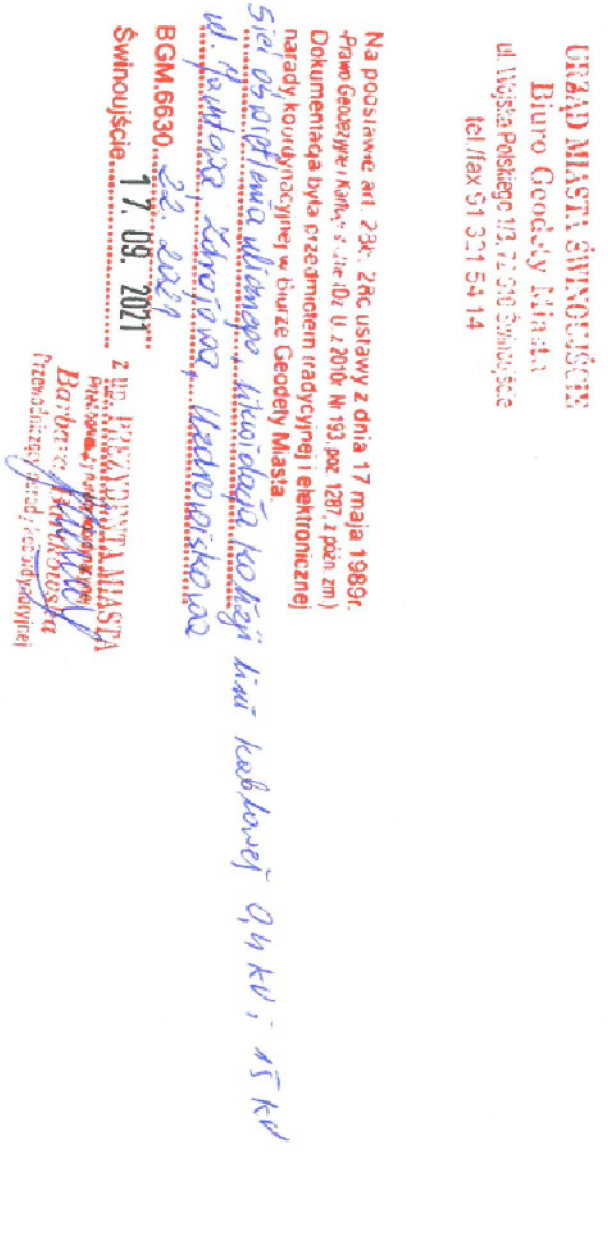 URZĄD MIASTA ŚWINOUJŚCIE
Biuro Geodety Miasta
ul. Wojska Polskiego 1/3, 72-510 Świnoujście
tel./fax 91 321 54 14
Na podstawie art. 28b, 28c ustawy z dnia 17 maja 1989r.
-Prawo Geodezyjne i Kartog (Dz. U. z 2010r. Nr 193 poz. 1287, z późn. zm.)
Dokumentacja była przedmiotem tradycyjnej i elektronicznej
narady koordynacyjnej w Biurze Geodety Miasta
Sieć oświetlenia ulicznego, likwidacja kolizji linii kablowej 0,4 kV i 15 kV
ul. Zdrojowa, Uzdrowiskowa
BGM.6630. 22. 2021
Świnoujście 17. 09. 2021
z up. PREZYDENTA MIASTA
Barbara
Przewodniczący narady koordynacyjnej